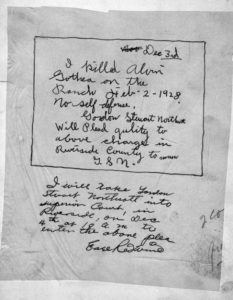 Dec 3rd
I killd Alvin
Gothea on the
Ranch Feb-2-1928
No self defense.
Gordon Stuart Northcott
Will Plead guilty to
above charge in
Riverside County to
G.S.N.
I will take Gordon
Stuart Northcott into
superior Court, in
Riverside, on Dec
4th at A m to
enter the above plea
Earl Redwine